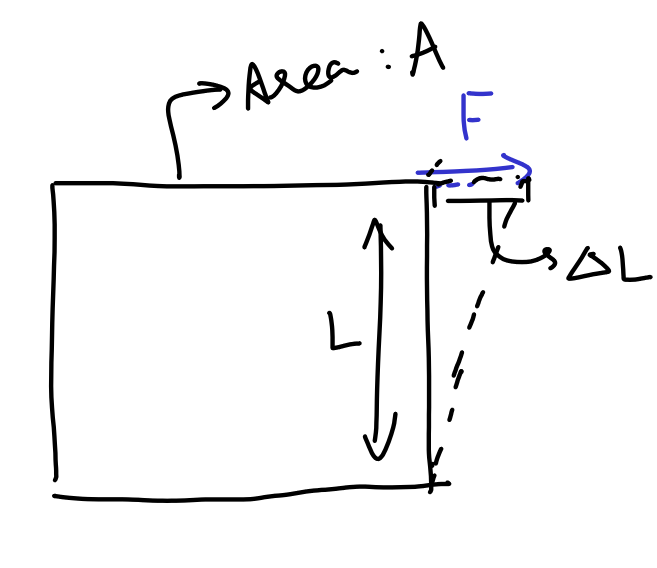 Area : A
F
L
ΔL